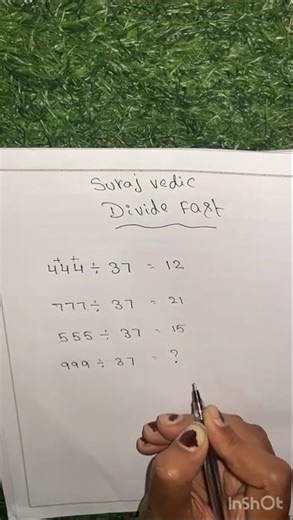 Suraj vedic
Divide Fast
4+4+4 ÷ 37 = 12
777 ÷ 37 = 21
555 ÷ 37 = 15
999 ÷ 37 = ?
InShOt